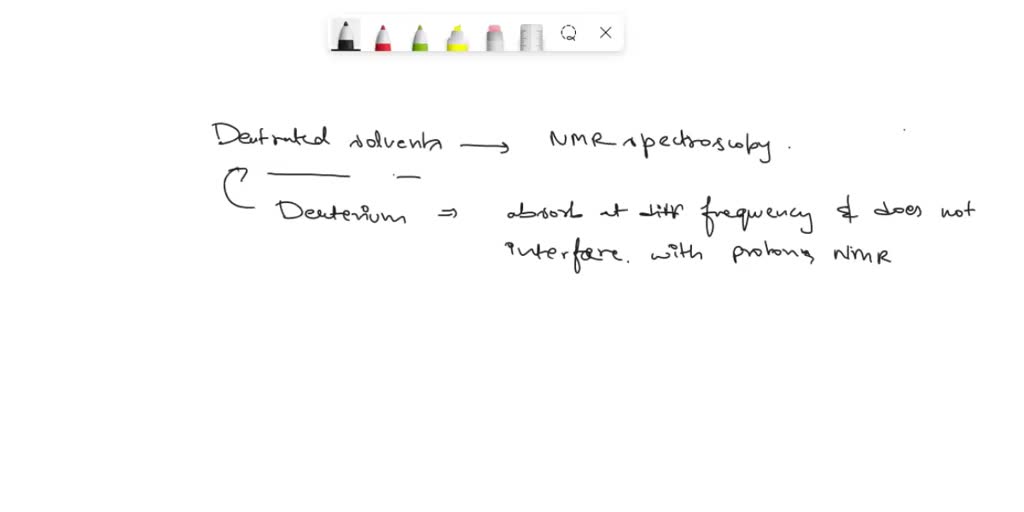 Deutrated solvents → NMR spectroscopy.
Deuterium ⇒ absorb at diff frequency & does not
interfere. with protons NMR